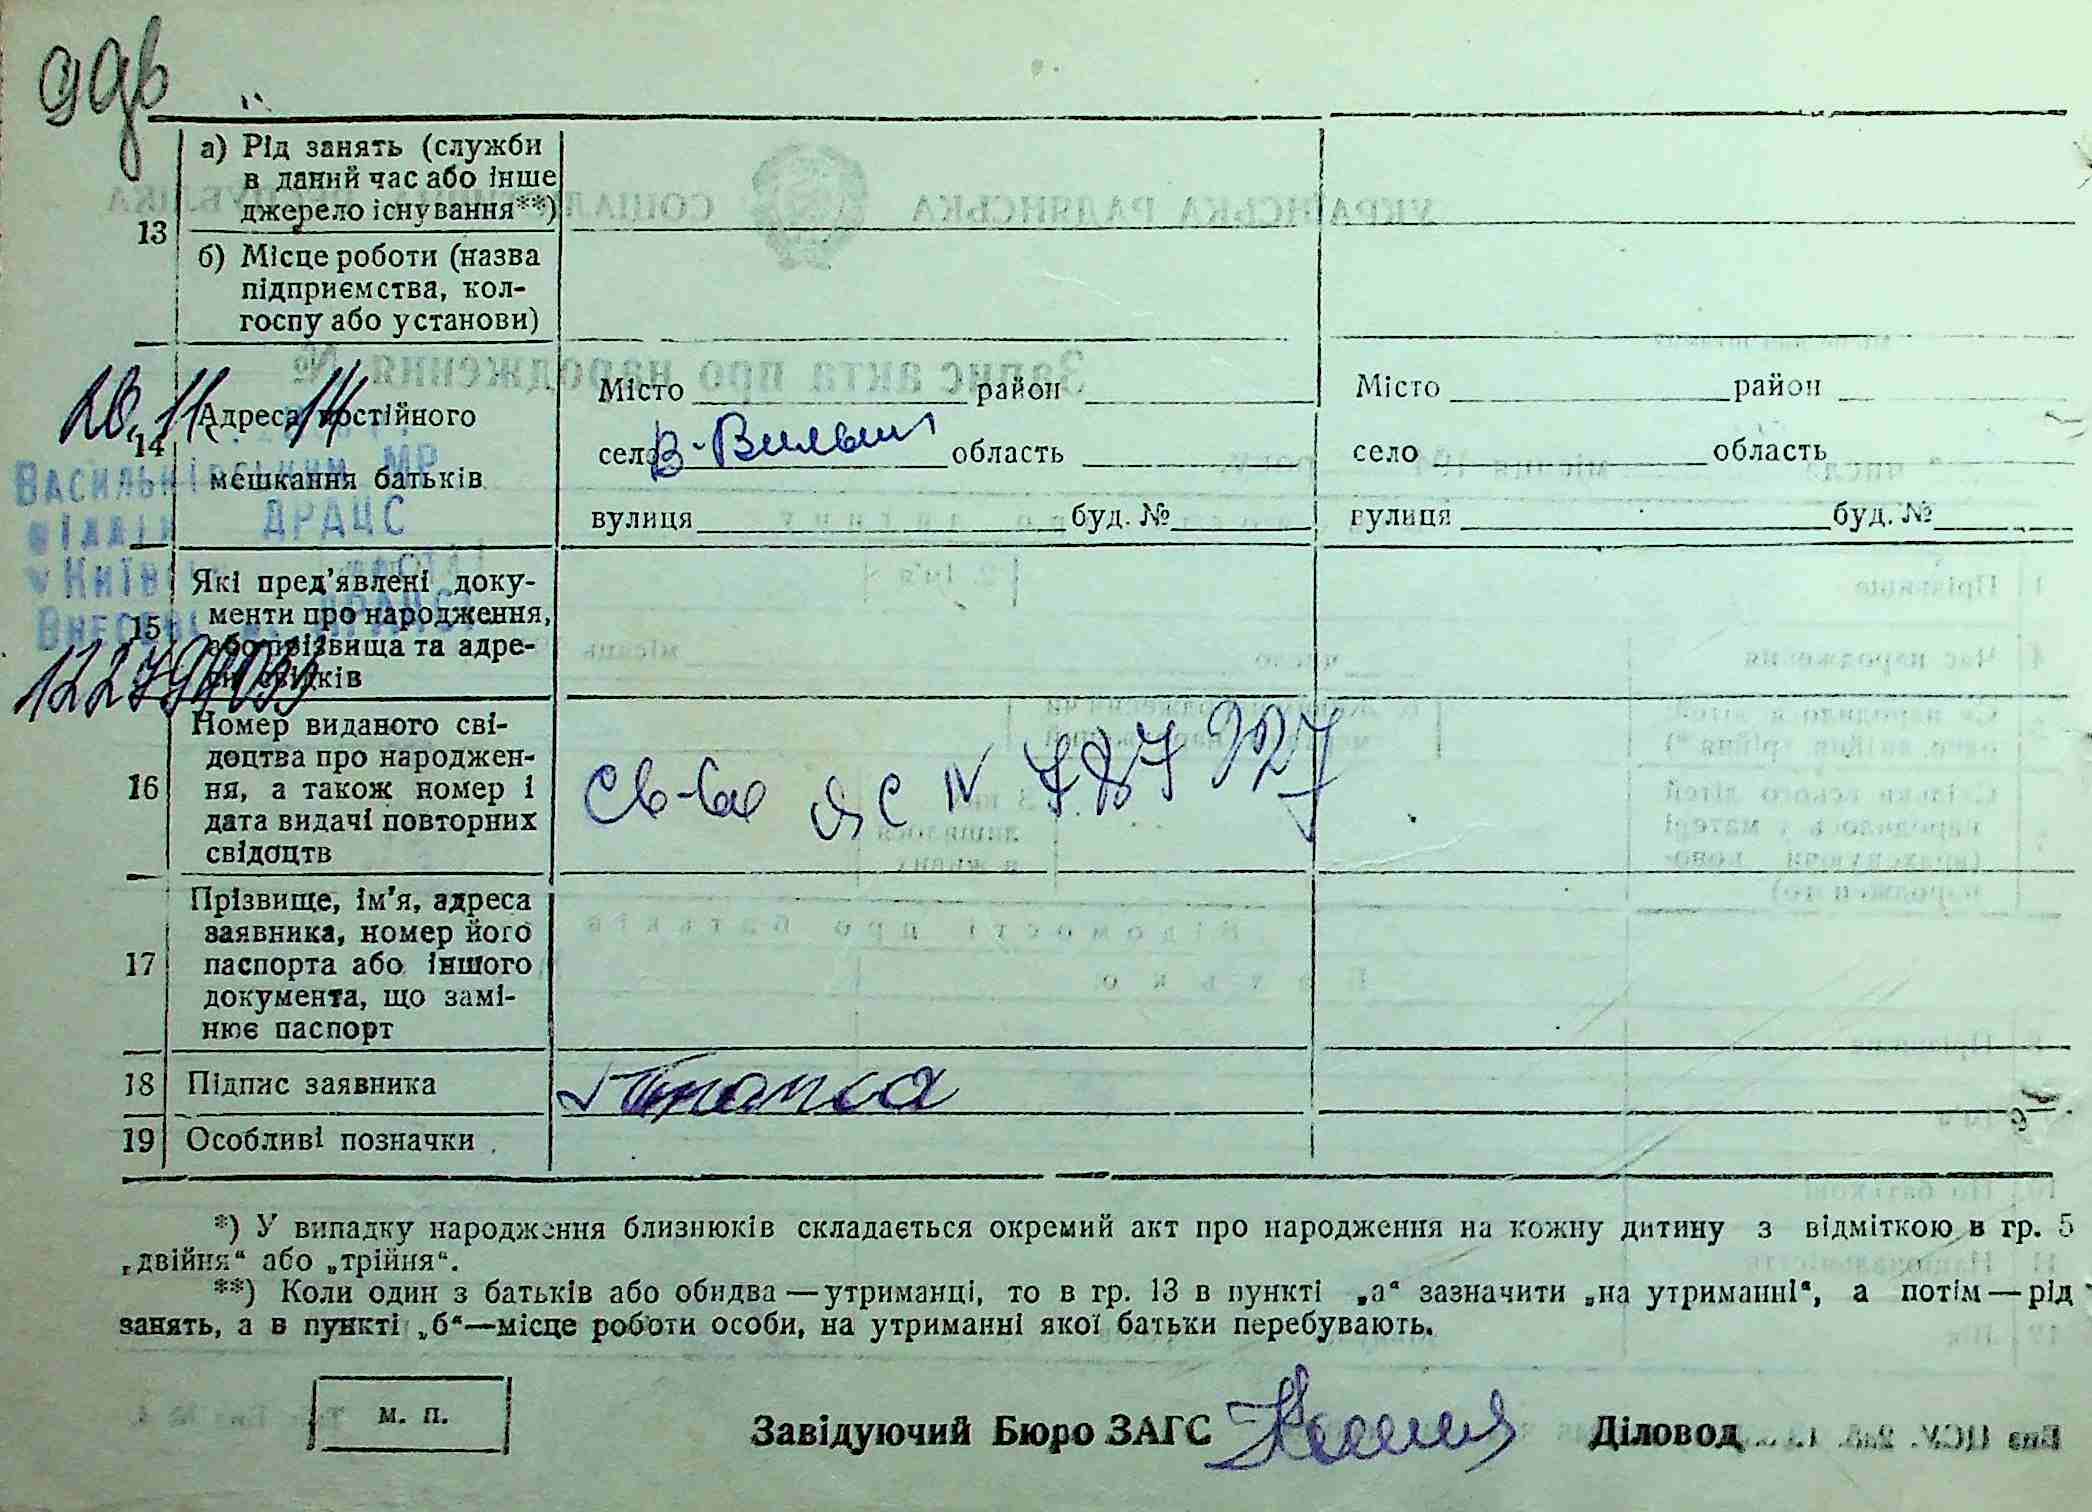 а) Рід занять (служби
в даний час або інше
джерело існування**)
13
б) Місце роботи (назва
підприємства, кол-
госпу або установи)
20.11.14
14
Адреса постійного
мешкання батьків
Місто район
село В-Вильшан область
вулиця буд. №
Місто район
село область
вулиця буд. №
Васильківським МР
ДРАЦС
15
Які пред’явлені доку-
менти про народження,
або прізвища та адре-
си свідків
16
Номер виданого сві-
доцтва про народжен-
ня, а також номер і
дата видачі повторних
свідоцтв
Св-во ЯС № 787927
17
Прізвище, ім’я, адреса
заявника, номер його
паспорта або іншого
документа, що замі-
нює паспорт
18 Підпис заявника
19 Особливі позначки
*) У випадку народження близнюків складається окремий акт про народження на кожну дитину з відміткою в гр. 5
„двійня“ або „трійня“.
**) Коли один з батьків або обидва — утриманці, то в гр. 13 в пункті „а“ зазначити „на утриманні“, а потім — рід
занять, а в пункті „б“—місце роботи особи, на утриманні якої батьки перебувають.
м. п.
Завідуючий Бюро ЗАГС Діловод